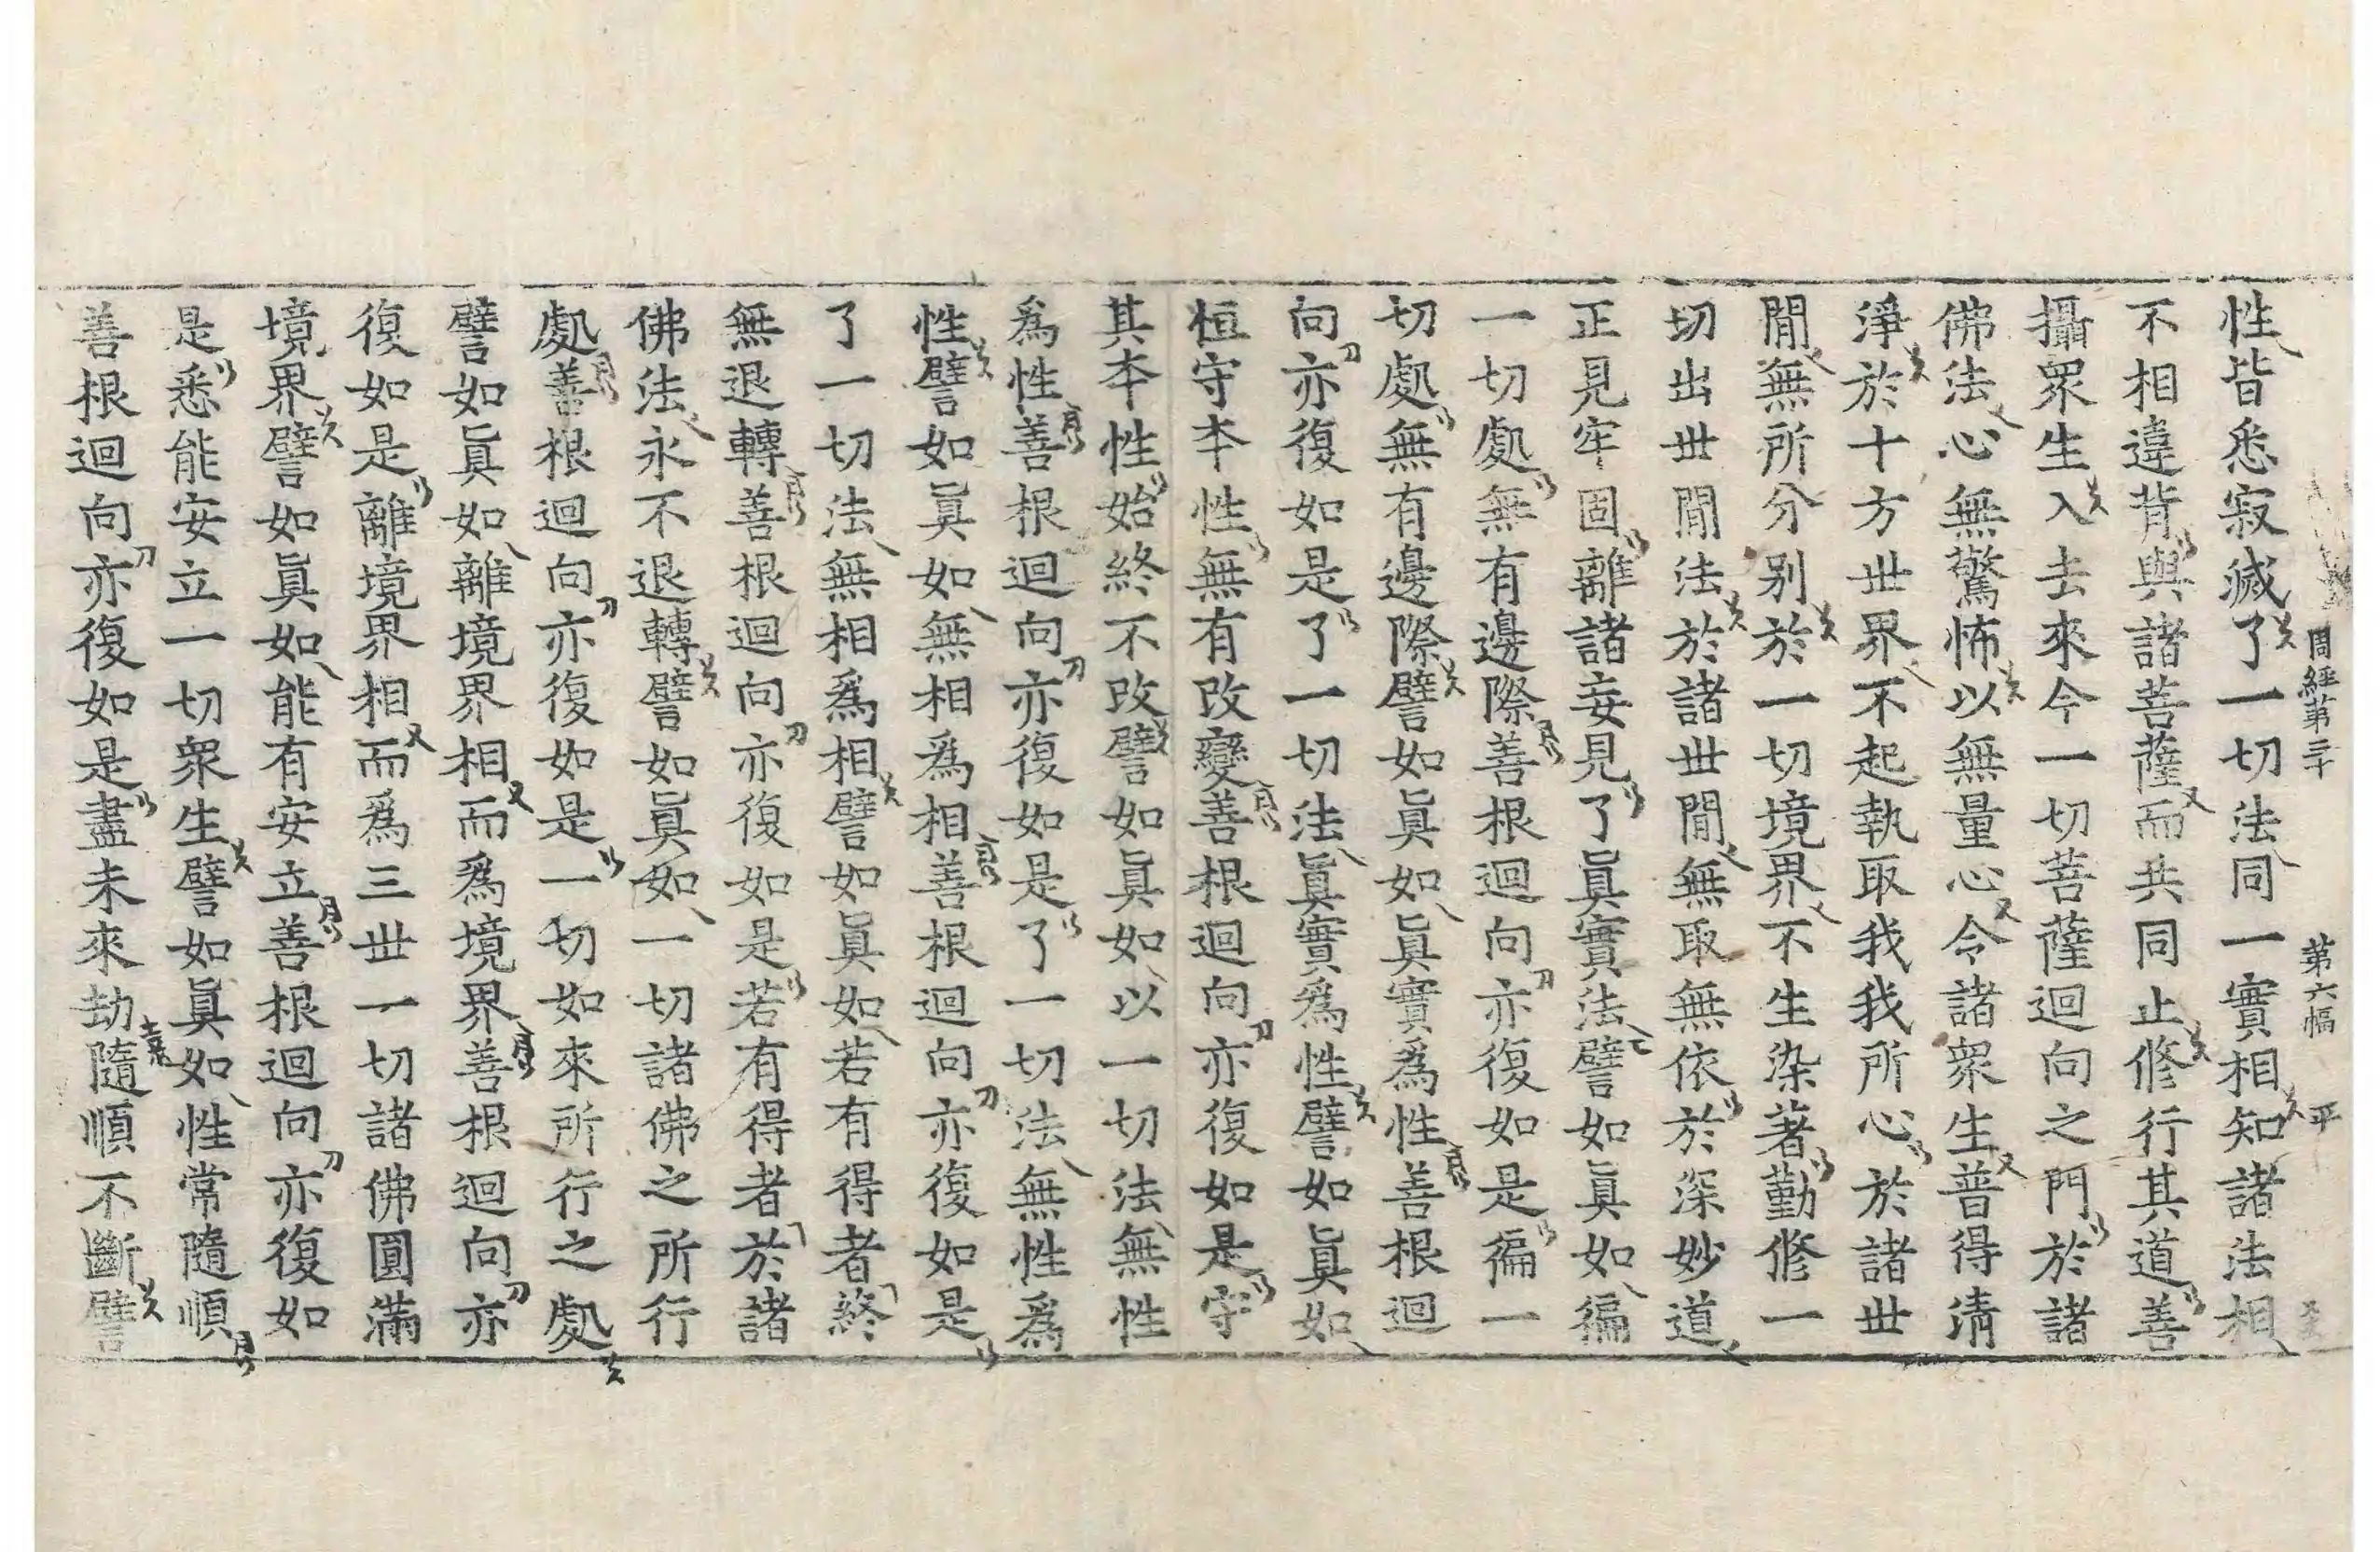 周経第三十 第六幅 平
性皆悉寂滅了一切法同一實相知諸法相
不相違背與諸菩薩而共同止修行其道善
攝眾生入去來今一切菩薩迴向之門於諸
佛法心無驚怖以無量心令諸眾生普得淸
淨於十方世界不起執取我我所心於諸世
閒無所分別於一切境界不生染著勤修一
切出世閒法於諸世閒無取無依於深妙道
正見牢固離諸妄見了眞實法譬如眞如徧
一切處無有邊際善根迴向亦復如是徧一
切處無有邊際譬如眞如眞實爲性善根迴
向亦復如是了一切法眞實爲性譬如眞如
恒守本性無有改變善根迴向亦復如是守
其本性始終不改譬如眞如以一切法無性
爲性善根迴向亦復如是了一切法無性爲
性譬如眞如無相爲相善根迴向亦復如是
了一切法無相爲相譬如眞如若有得者終
無退轉善根迴向亦復如是若有得者於諸
佛法永不退轉譬如眞如一切諸佛之所行
處善根迴向亦復如是一切如來所行之處
譬如眞如離境界相而爲境界善根迴向亦
復如是離境界相而爲三世一切諸佛圓滿
境界譬如眞如能有安立善根迴向亦復如
是悉能安立一切眾生譬如眞如性常隨順
善根迴向亦復如是盡未來劫隨順不斷譬